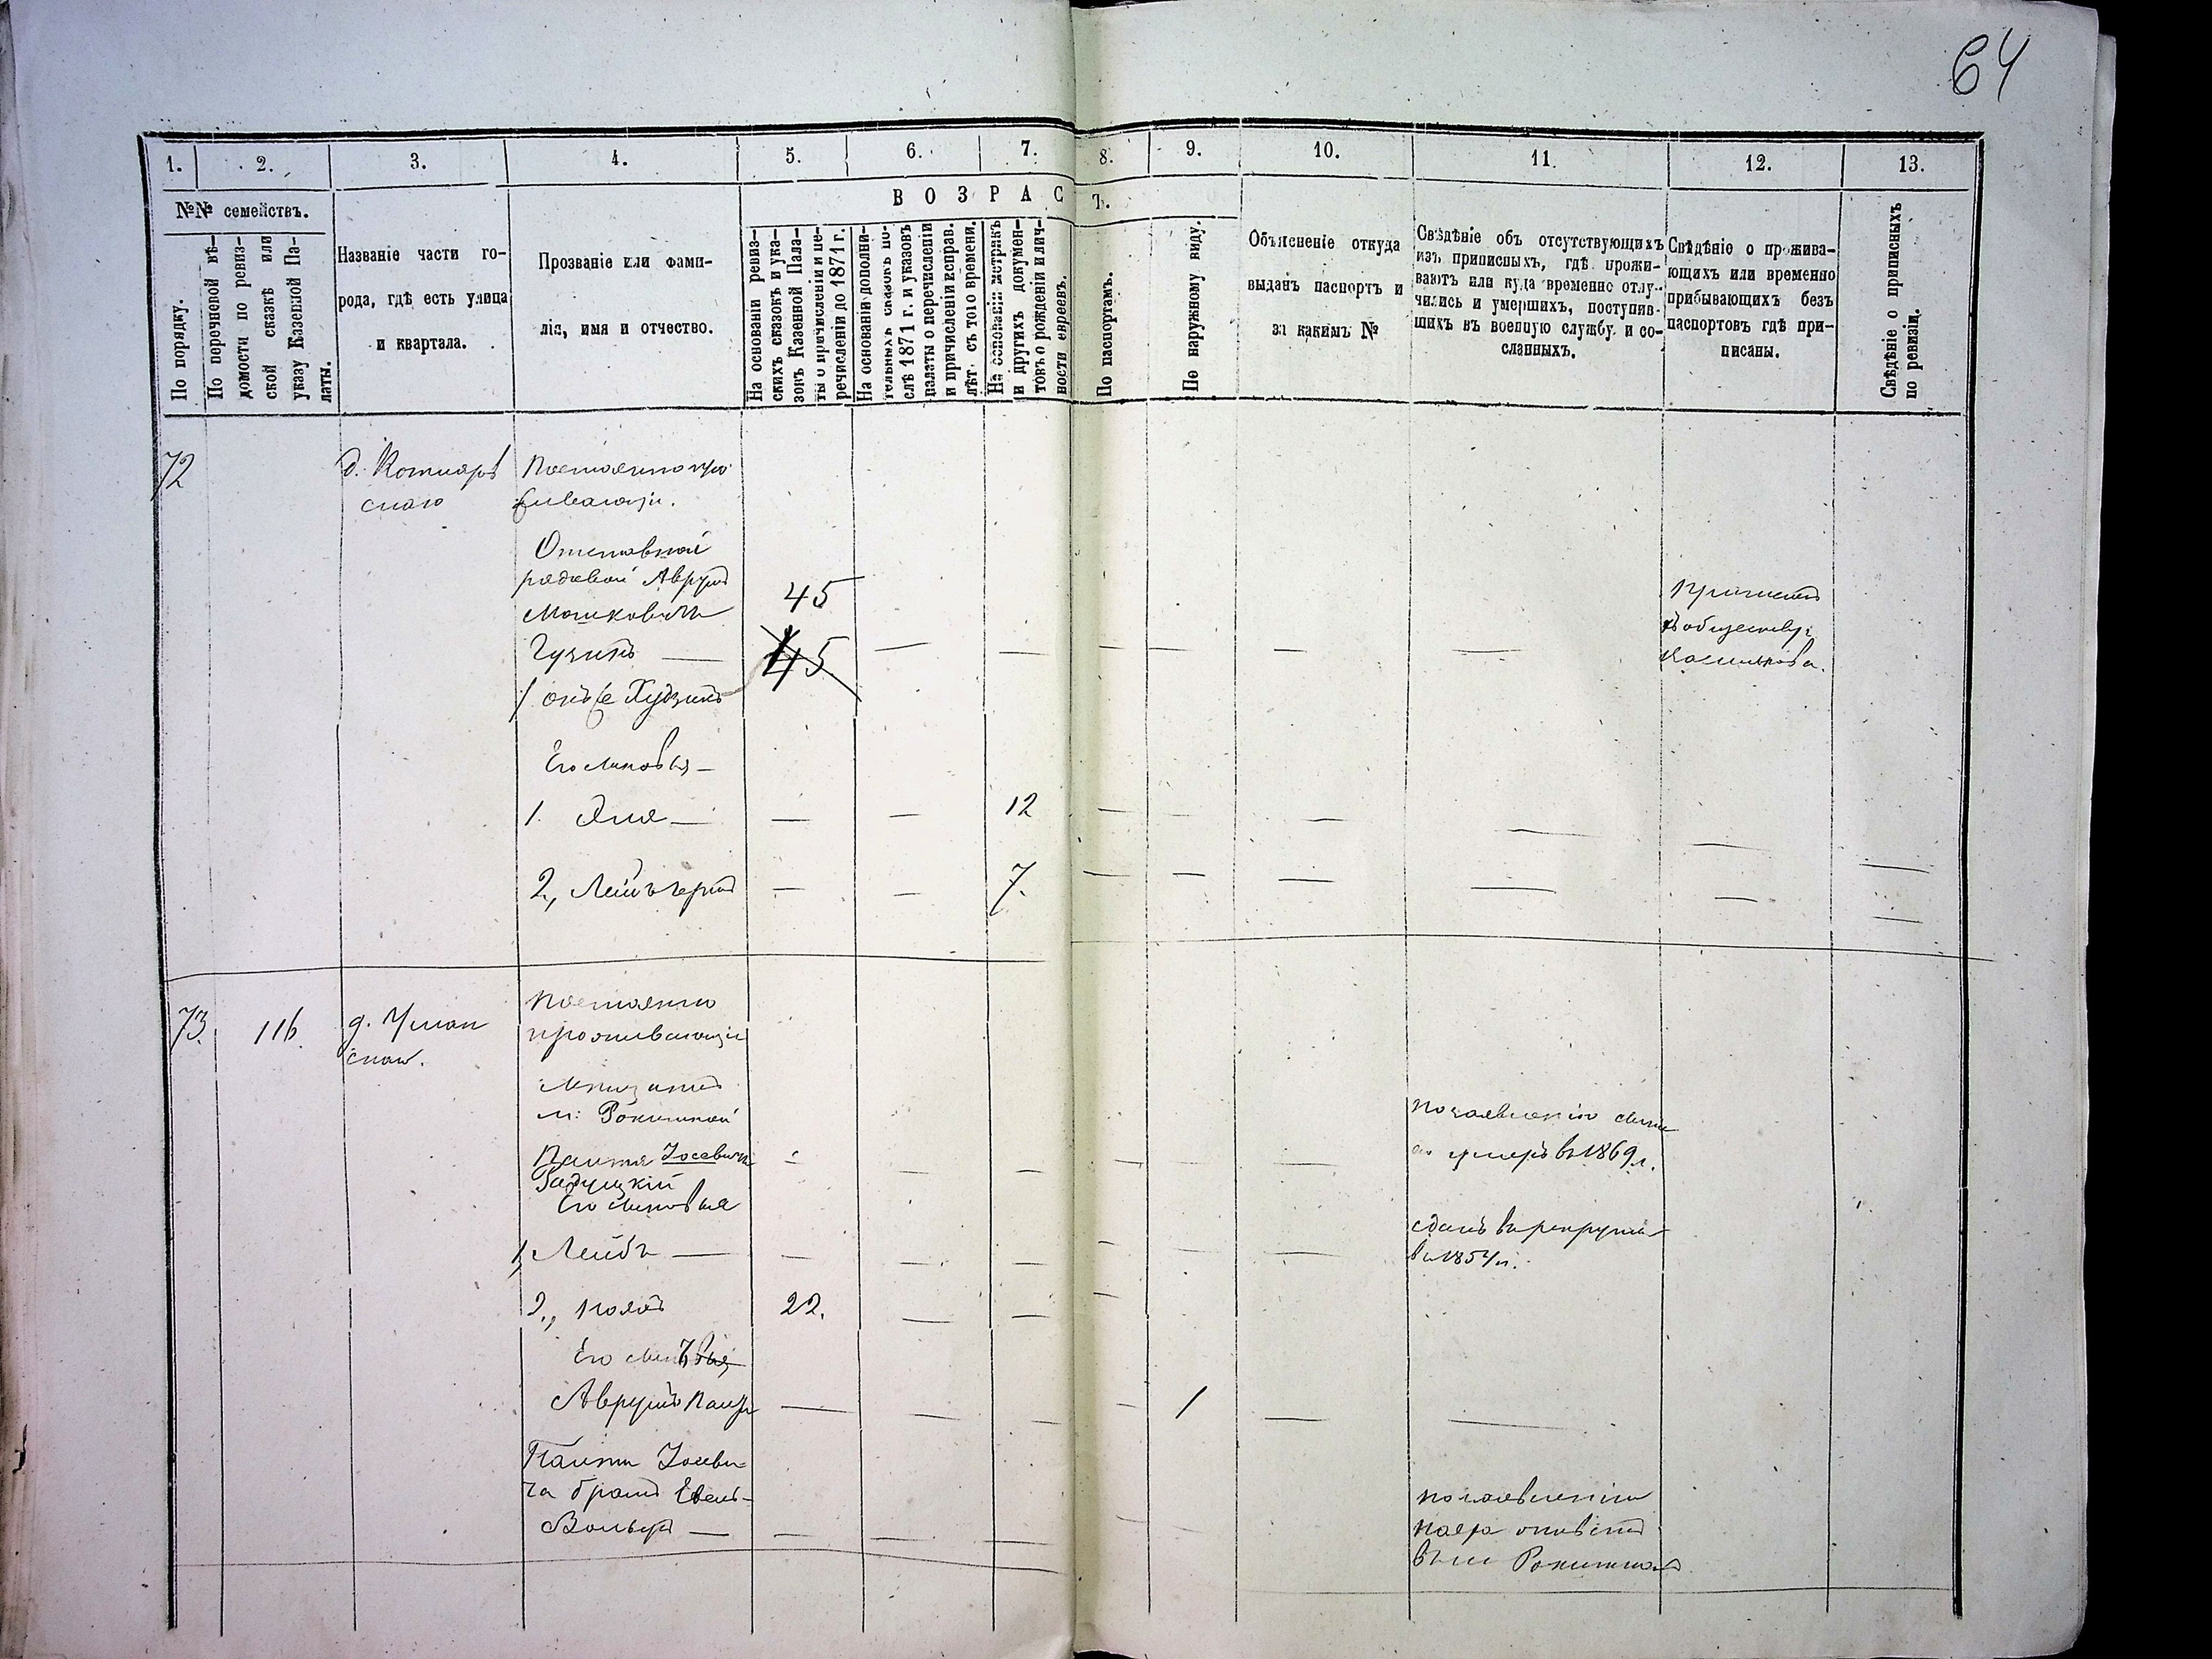 64
1. 2. 3. 4. 5. 6. 7. 8. 9. 10. 11. 12. 13.
№№ семействъ.
По порядку.
По перечневой вѣ-
домости по ревиз-
ской сказкѣ или
указу Казенной Па-
латы.
Названіе части го-
рода, гдѣ есть улица
и квартала.
Прозваніе или фами-
лія, имя и отчество.
ВОЗРАСТЪ.
На основаніи ревиз-
скихъ сказокъ и ука-
зовъ Казенной Пала-
ты о причисленіи и пе-
речисленіи до 1871 г.
На основаніи дополни-
тельныхъ сказокъ по-
слѣ 1871 г. и указовъ
палаты о перечисленіи
и причисленіи исправ.
лѣт. съ того времени.
На основаніи метрикъ
и другихъ докумен-
товъ о рожденіи и лич-
ности евреевъ.
По паспортамъ.
По наружному виду.
Объясненіе откуда
выданъ паспортъ и
за какимъ №
Свѣдѣніе объ отсутствующихъ
изъ приписныхъ, гдѣ прожи-
ваютъ или куда временно отлу-
чились и умершихъ, поступив-
шихъ въ военную службу и со-
сланныхъ.
Свѣдѣніе о прожива-
ющихъ или временно
прибывающихъ безъ
паспортовъ гдѣ при-
писаны.
Свѣдѣніе о приписныхъ
по ревизіи.
72
Постоянно про
живающи.
Отставной
рядовой Аврумъ
Мошковичъ 45
Гузикъ — 45
онъ же Гудзикъ
Приписанъ
къ обществу
Василькова.
Его сыновья —
1. — — 12
2., — — 7.
73. 116. д. Уман
скаго.
Постоянно
проживающіе
Мещанинъ
м: Рокитной
Іосевичъ
Радуцкій
Его сыновья
по заявленію сына
его умеръ въ 1869 г.
1, Лейбъ — —
сданъ въ рекруты
въ 1854 г.
2., 22.
Его сынъ
Аврумъ — 1
Іосеви-
ча братъ
Вольфъ —
по заявленію
онъ
въ м. Рокитной